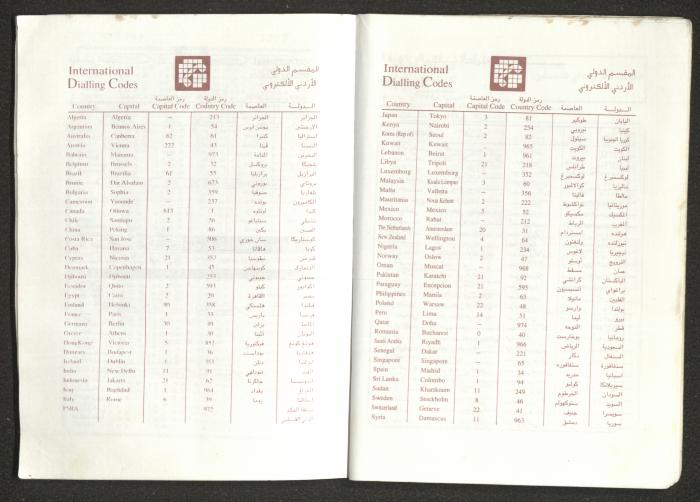 International
Dialling Codes
المقسم الدولي
الأردني الألكتروني
رمز العاصمة رمز الدولة
Country Capital Capital Code Country Code العاصمة الدولة
Algeria Algeria – 213 الجزائر الجزائر
Argentina Buenos Aires 1 54
Australia Canberra 62 61 كنبرا استراليا
Austria Vienna 222 43 فينا النمسا
Bahrain Manama – 973 المنامة البحرين
Belgium Brussels 2 32 بروكسل بلجيكا
Brazil Brazilia 61 55 برازيليا البرازيل
Brunie Dar Alsalam 2 673 بروناي
Bulgaria Sophia 2 359 صوفيا بلغاريا
Cameroon Yaounde – 237 الكاميرون
Canada Ottawa 613 1 اوتاوه كندا
Chile Santiago 2 56 سنتياغو تشيلي
China Peking 1 86 بكين الصين
Costa Rica San Jose – 506 سان خوزي كوستاريكا
Cuba Havana 7 53 هافانا كوبا
Cyprus Nicosia 21 357 نيقوسيا قبرص
Denmark Copenhagen 1 45 كوبنهاجن الدنمارك
Djibouti Djibouti – 253 جيبوتي جيبوتي
Ecuador Quito 2 593 كويتو اكوادور
Egypt Cairo 2 20 القاهرة مصر
Finland Helsinki 90 358 هلسنكي فنلندا
France Paris 1 33 باريس فرنسا
Germany Berlin 30 49 برلين المانيا
Greece Athens 1 30 اثينا اليونان
HongKong Victoria 5 852 فيكتوريا هونغ كونغ
Hungary Budapest 1 36 بودابست هنغاريا
Iceland Dublin 1 353 دبلن ايرلندا
India New Delhi 11 91 نيودلهي الهند
Indonesia Jakarta 21 62 جاكرتا اندونيسيا
Iraq Baghdad 1 964 بغداد العراق
Italy Rome 6 39 روما ايطاليا
PNRA 972
International
Dialling Codes
المقسم الدولي
الأردني الألكتروني
رمز العاصمة رمز الدولة
Country Capital Capital Code Country Code العاصمة الدولة
Japan Tokyo 3 81 طوكيو اليابان
Kenya Nairobi 2 254 نيروبي كينيا
Korea (Rep of) Seoul 2 82 سيئول كوريا الجنوبية
Kuwait Kuwait – 965 الكويت الكويت
Lebanon Beirut 1 961 بيروت لبنان
Libya Tripoli 21 218 طرابلس ليبيا
Luxemborg Luxembsirg – 352 لوكسمبرغ لوكسمبرغ
Malaysia Kuala Lumpur 3 60 كوالالمبور ماليزيا
Malta Valletta – 356 فاليتا مالطا
Mauritania Nouak Kehott 2 222 نواكشوط موريتانيا
Mexico Mexico 5 52 مكسيكو المكسيك
Morocco Rabat – 212 الرباط المغرب
The Netherlands Amsterdam 20 31 امستردام هولنده
New Zealand Wellington 4 64 ولنغتون نيوزلنده
Nigeria Lagos 1 234 لاغوس نيجيريا
Norway Oslow 2 47 اوسلو النرويج
Oman Muscat – 968 مسقط عمان
Pakistan Karatchi 21 92 كراتشي الباكستان
Paraguay Encepcion 21 595 براغواي
Philippines Manila 2 63 مانيلا الفلبين
Poland Warsaw 22 48 وارسو بولندا
Peru Lima 14 51 ليما بيرو
Qatar Doha – 974 الدوحه قطر
Romania Bucharest 0 40 بوخارست رومانيا
Saudi Arabia Riyadh 1 966 الرياض السعودية
Senegal Dakar – 221 دكار السنغال
Singapore Singapore – 65 سنغافوره سنغافورة
Spain Madrid 1 34 مدريد اسبانيا
Sri Lanka Colombo 1 94 كولمبو سيريلانكا
Sudan Khartkoum 11 249 الخرطوم السودان
Sweden Stockholm 8 46 ستوكهولم السويد
Switzerland Geneve 22 41 جنيف سويسرا
Syria Damascus 11 963 دمشق سوريا